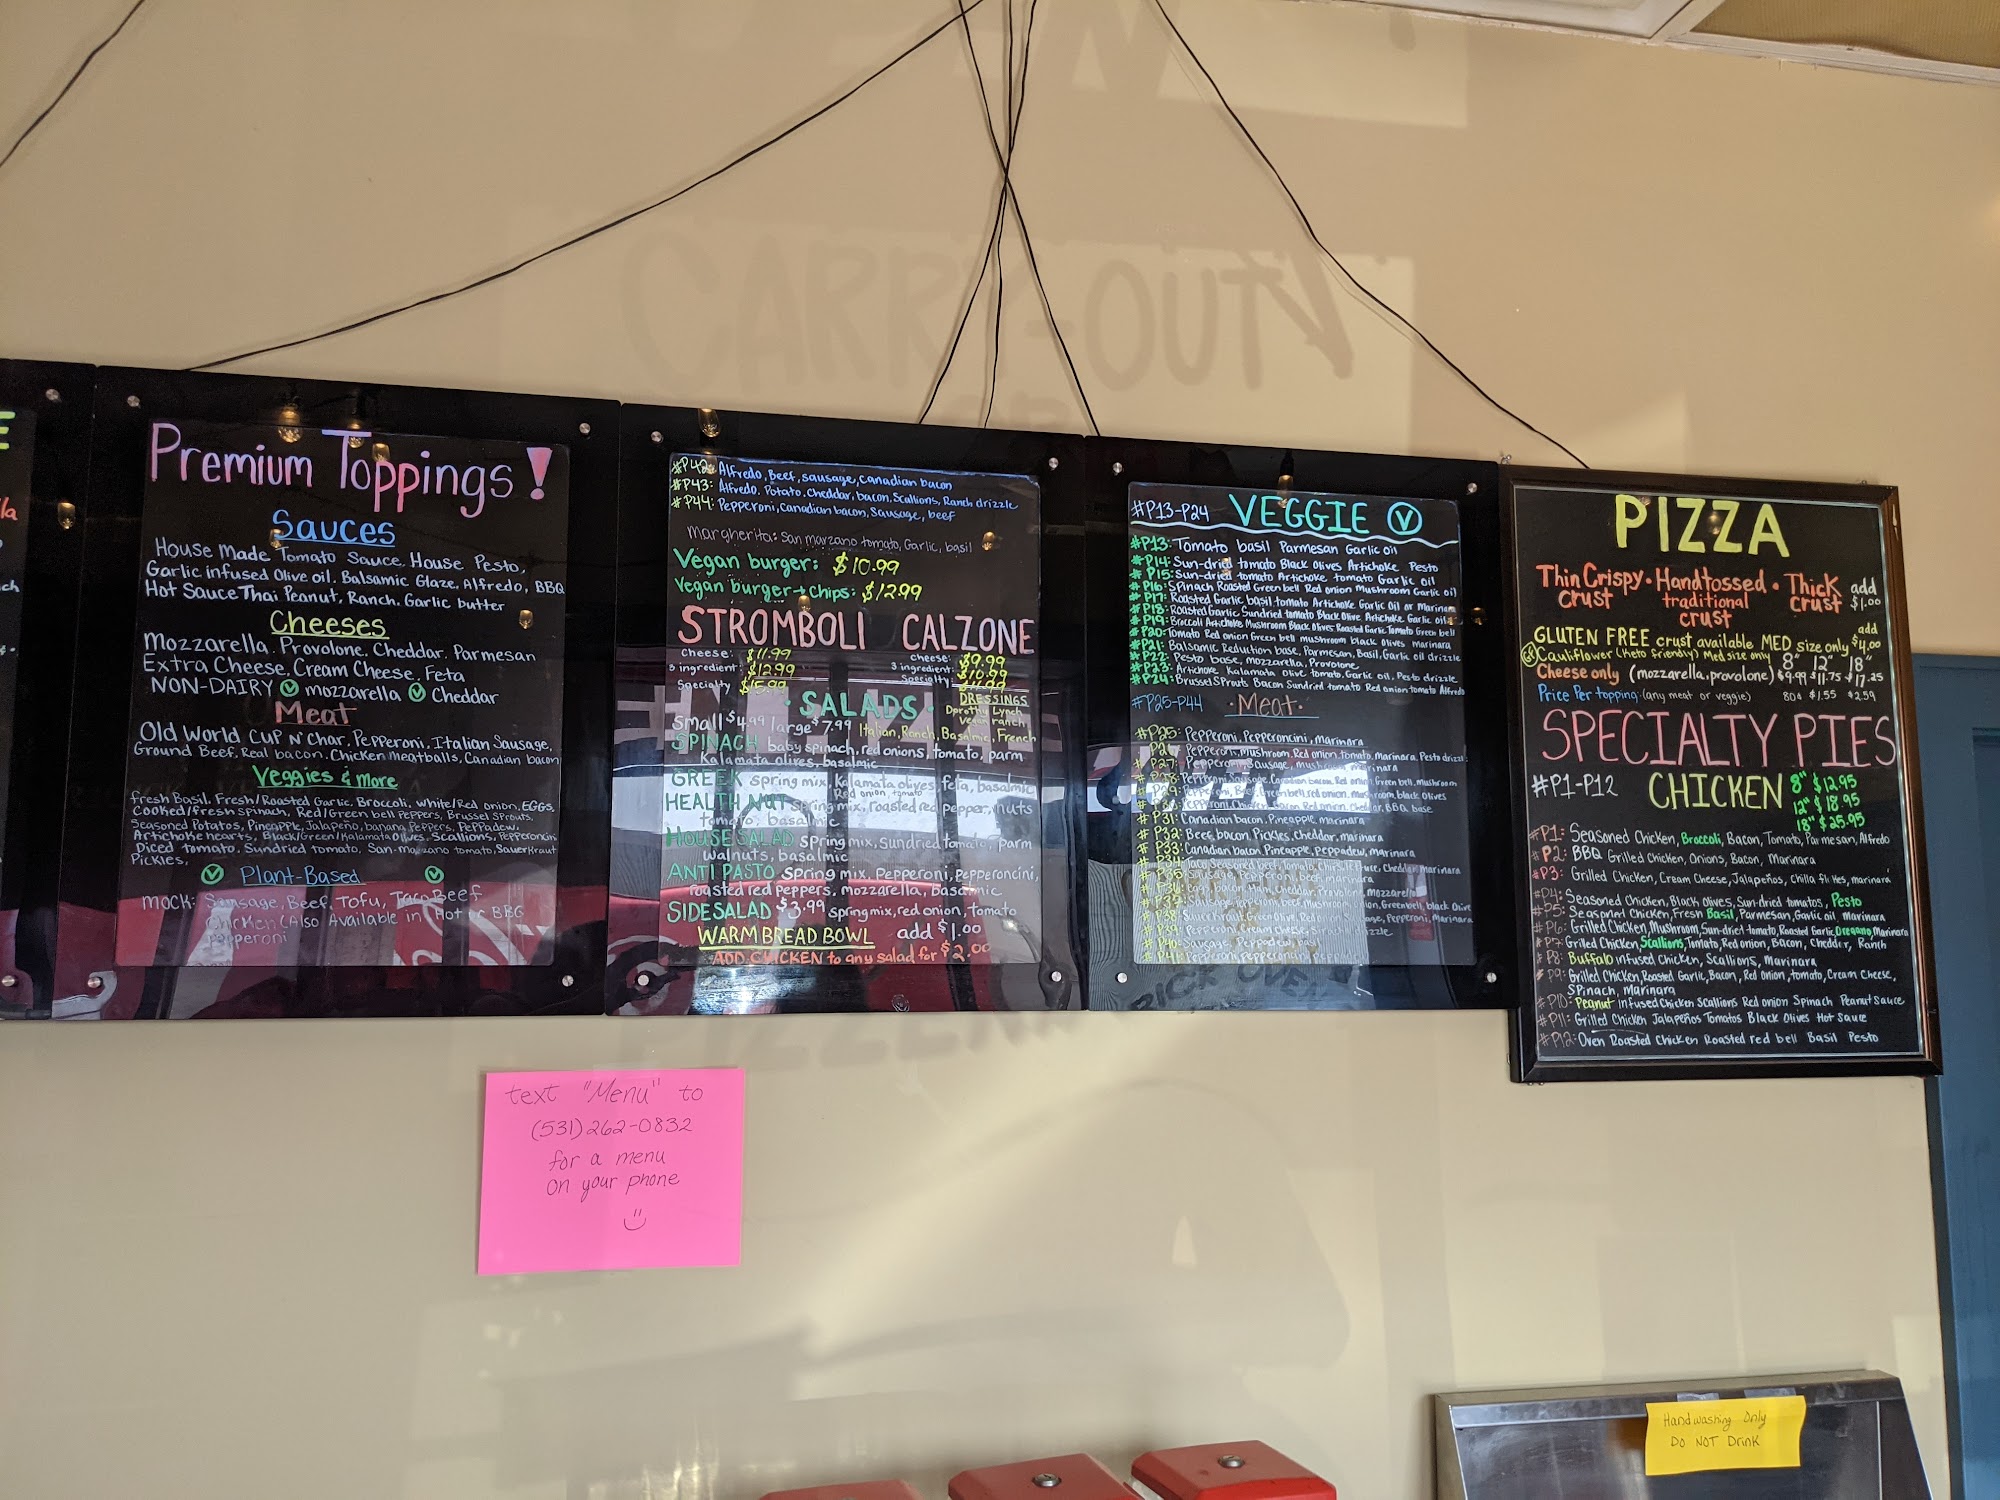 CARRY-OUT
Premium Toppings!
Sauces
House Made Tomato Sauce, House Pesto,
Garlic infused Olive oil, Balsamic Glaze, Alfredo, BBQ
Hot Sauce Thai Peanut, Ranch, Garlic butter
Cheeses
Mozzarella, Provolone, Cheddar, Parmesan
Extra Cheese, Cream Cheese, Feta
NON-DAIRY V mozzarella V Cheddar
Meat
Old World Cup N' Char, Pepperoni, Italian Sausage,
Ground Beef, Real bacon, Chicken Meatballs, Canadian bacon
Veggies & More
fresh Basil, Fresh/Roasted Garlic, Broccoli, White/Red onion, EGGS,
Cooked/Fresh spinach, Red/Green bell Peppers, Brussel Sprouts,
Seasoned Potatoes, Pineapple, Jalapeño, banana Peppers, Peppadew,
Artichoke hearts, Black/Green/Kalamata Olives, Scallions, Pepperoncini
Diced tomato, Sundried tomato, San-Marzano tomato, Sauerkraut
Pickles,
V Plant-Based V
MOCK: Sausage, Beef, Tofu, Taco Beef
Chicken (Also Available in Hot or BBQ
Pepperoni
#P42: Alfredo, Beef, sausage, Canadian bacon
#P43: Alfredo, Potato, Cheddar, bacon, Scallions, Ranch drizzle
#P44: Pepperoni, Canadian bacon, Sausage, beef
Margherita: San marzano tomato, Garlic, basil
Vegan burger: $10.99
Vegan burger + chips: $12.99
STROMBOLI CALZONE
Cheese: $11.99 cheese: $9.99
3 ingredient: $12.99 3 ingredient: $10.99
Specialty $15.99 Specialty: $11.99
SALADS
DRESSINGS
Dorothy Lynch
Vegan ranch,
Small $4.99 large $7.99 Italian, Ranch, Basalmic, French
SPINACH baby spinach, red onions, tomato, parm
Kalamata olives, basalmic
GREEK spring mix, Kalamata olives, feta, basalmic
Red onion, tomato
HEALTH NUT spring mix, roasted red pepper, nuts
tomato, basalmic
HOUSE SALAD spring mix, sundried tomato, parm
walnuts, basalmic
ANTI PASTO spring mix, Pepperoni, Pepperoncini,
roasted red peppers, mozzarella, basalmic
SIDE SALAD $3.99 spring mix, red onion, tomato
WARM BREAD BOWL add $1.00
ADD CHICKEN to any salad for $2.00
#P13-P24 VEGGIE V
#P13: Tomato basil Parmesan Garlic oil
#P14: Sun-dried tomato Black Olives Artichoke Pesto
#P15: Sun-dried tomato Artichoke tomato Garlic oil
#P16: Spinach Roasted Green bell Red onion Mushroom Garlic oil
#P17: Roasted Garlic basil tomato Artichoke Garlic Oil or Marinara
#P18: Roasted Garlic Sundried tomato Black Olive Artichoke Garlic oil
#P19: Broccoli Artichoke Mushroom Black Olives Roasted Garlic Tomato Green bell
#P20: Tomato Red onion Green bell mushroom black Olives marinara
#P21: Balsamic Reduction base, Parmesan, Basil, Garlic oil drizzle
#P22: Pesto base, mozzarella, Provolone
#P23: Artichoke, Kalamata Olive tomato, Garlic oil, Pesto drizzle
#P24: Brussel Sprouts Bacon Sundried tomato Red onion tomato Alfredo
#P25-P44 Meat
#P25: Pepperoni, Pepperoncini, Marinara
Pepperoni, Mushroom, Red onion, Tomato, Marinara, Pesto drizzle
#P27: Pepperoni, Sausage, mushroom, marinara
Pepperoni, Sausage, Canadian bacon, Red onion, Green bell, mushroom
#P29: Pepperoni, Beef, Green bell, red onion, mushroom, black Olives
Pepperoni, Chicken, bacon, Red onion, Cheddar, BBQ base
#P31: Canadian bacon, Pineapple, marinara
#P32: Beef, bacon, Pickles, Cheddar, marinara
#P33: Canadian bacon, Pineapple, Peppadew, marinara
#P34: Taco Seasoned beef, Tomato, Chips, lettuce, Cheddar, Marinara
#P35: Sausage, Pepperoni, beef, marinara
Eggs, bacon, Ham, Cheddar, Provolone, mozzarella
Sausage, Pepperoni, beef, Mushroom, onion, Green bell, black Olive
#P38: Sauerkraut, Green Olive, Red onion, Sausage, Pepperoni, Marinara
#P39: Pepperoni, Cream Cheese, Sriracha drizzle
#P40: Sausage, Peppadew,
#P41: Pepperoni, Pepperoncini, Peppadew
PIZZA
Thin Crispy • Handtossed • Thick add
crust traditional crust $1.00
crust
GLUTEN FREE crust available MED size only add $4.00
GF Cauliflower (Keto friendly) Med size only 8" 12" 18"
Cheese only (mozzarella, provolone) $9.99 $11.75 $17.25
Price Per topping (any meat or veggie) 80¢ $1.55 $2.59
SPECIALTY PIES
#P1-P12 CHICKEN 8" $12.95
12" $18.95
18" $25.95
#P1: Seasoned Chicken, Broccoli, Bacon, Tomato, Parmesan, Alfredo
#P2: BBQ Grilled Chicken, Onions, Bacon, Marinara
#P3: Grilled Chicken, Cream Cheese, Jalapeños, Chilla flakes, marinara
#P4: Seasoned Chicken, Black olives, Sun-dried tomatos, Pesto
#P5: Seasoned Chicken, Fresh Basil, Parmesan, Garlic oil, marinara
#P6: Grilled Chicken, Mushroom, Sun-dried tomato, Roasted Garlic, Oregano, Marinara
#P7: Grilled Chicken, Scallions, Tomato, Red onion, Bacon, Cheddar, Ranch
#P8: Buffalo infused Chicken, Scallions, Marinara
#P9: Grilled Chicken, Roasted Garlic, Bacon, Red onion, tomato, Cream Cheese,
Spinach, Marinara
#P10: Peanut infused Chicken Scallions Red onion Spinach Peanut Sauce
#P11: Grilled Chicken Jalapeños Tomatos Black Olives Hot Sauce
#P12: Oven Roasted Chicken Roasted red bell Basil Pesto
text "Menu" to
(531) 262-0832
for a menu
on your phone
Handwashing Only
DO NOT Drink